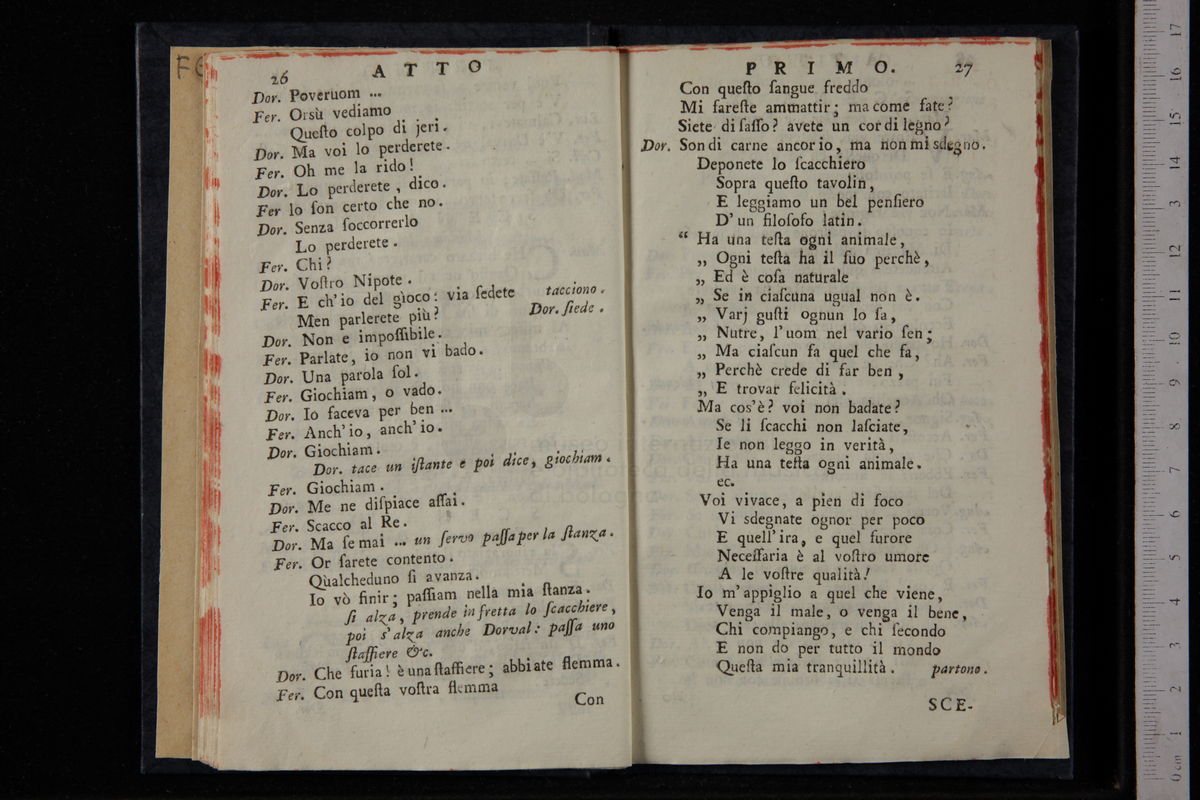 26 ATTO
Dor. Poveruom ...
Fer. Orsù vediamo
Queſto colpo di jeri.
Dor. Ma voi lo perderete.
Fer. Oh me la rido!
Dor. Lo perderete, dico.
Fer lo ſon certo che no.
Dor. Senza ſoccorrerlo
Lo perderete.
Fer. Chi?
Dor. Voſtro Nipote.
Fer. E ch'io del gioco: via ſedete tacciono.
Men parlerete più? Dor. ſiede.
Dor. Non e impoſſibile.
Fer. Parlate, io non vi bado.
Dor. Una parola ſol.
Fer. Giochiam, o vado.
Dor. Io faceva per ben ...
Fer. Anch'io, anch'io.
Dor. Giochiam.
Dor. tace un iſtante e poi dice, giochiam.
Fer. Giochiam.
Dor. Me ne diſpiace aſſai.
Fer. Scacco al Re.
Dor. Ma ſe mai ... un ſervo paſſa per la ſtanza.
Fer. Or ſarete contento.
Qualcheduno ſi avanza.
Io vò finir; paſſiam nella mia ſtanza.
ſi alza, prende in fretta lo ſcacchiere,
poi s'alza anche Dorval: paſſa uno
ſtaffiere &c.
Dor. Che furia! è una ſtaffiere; abbiate flemma.
Fer. Con queſta voſtra flemma
Con
PRIMO. 27
Con queſto ſangue freddo
Mi fareſte ammattir; ma come fate?
Siete di ſaſſo? avete un cor di legno?
Dor. Son di carne ancor io, ma non mi sdegno.
Deponete lo ſcacchiero
Sopra queſto tavolin,
E leggiamo un bel penſiero
D'un filoſofo latin.
“ Ha una teſta ogni animale,
„ Ogni teſta ha il ſuo perchè,
„ Ed è coſa naturale
„ Se in ciaſcuna ugual non è.
„ Varj guſti ognun lo ſa,
„ Nutre, l'uom nel vario ſen;
„ Ma ciaſcun fa quel che fa,
„ Perchè crede di far ben,
„ E trovar felicità.
Ma cos'è? voi non badate?
Se li ſcacchi non laſciate,
Ie non leggo in verità,
Ha una teſta ogni animale.
ec.
Voi vivace, a pien di foco
Vi sdegnate ognor per poco
E quell'ira, e quel furore
Neceſſaria è al voſtro umore
A le voſtre qualità!
Io m'appiglio a quel che viene,
Venga il male, o venga il bene,
Chi compiango, e chi ſecondo
E non do per tutto il mondo
Queſta mia tranquillità. partono.
SCE-